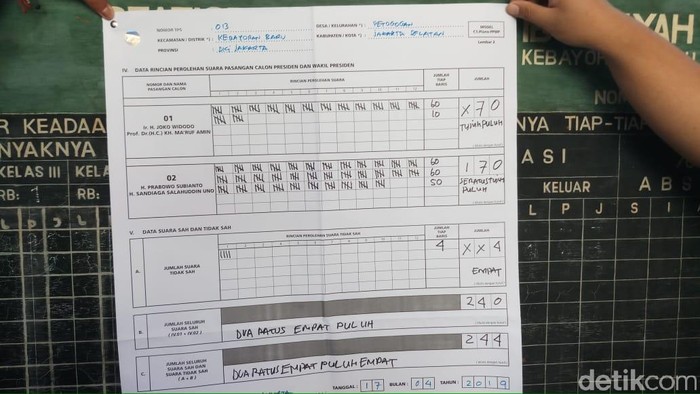 NOMOR TPS : 013
KECAMATAN / DISTRIK *) : KEBAYORAN BARU
PROVINSI : DKI JAKARTA
DESA / KELURAHAN *) : PETOGOGAN
KABUPATEN / KOTA *) : JAKARTA SELATAN
MODEL
C1.Plano-PPWP
Lembar 2
IV. DATA RINCIAN PEROLEHAN SUARA PASANGAN CALON PRESIDEN DAN WAKIL PRESIDEN
NOMOR DAN NAMA PASANGAN CALON
RINCIAN PEROLEHAN SUARA
JUMLAH TIAP BARIS
JUMLAH
1 2 3 4 5 6 7 8 9 10 11 12
01
Ir. H. JOKO WIDODO
Prof. Dr.(H.C.) KH. MA'RUF AMIN
60
10
X 7 0
TUJUH PULUH
02
H. PRABOWO SUBIANTO
H. SANDIAGA SALAHUDDIN UNO
60
60
50
1 7 0
SERATUS TUJUH
PULUH
V. DATA SUARA SAH DAN TIDAK SAH
RINCIAN PEROLEHAN SUARA TIDAK SAH
JUMLAH TIAP BARIS
JUMLAH
A.
JUMLAH SUARA
TIDAK SAH
4
X X 4
EMPAT
B.
JUMLAH SELURUH
SUARA SAH
(IV.01 + IV.02)
DUA RATUS EMPAT PULUH
2 4 0
C.
JUMLAH SELURUH
SUARA SAH DAN
SUARA TIDAK SAH
(A + B)
DUA RATUS EMPAT PULUH EMPAT
2 4 4
TANGGAL : 17 BULAN : 04 TAHUN : 2019
R KEADAA
NYAKNYA
KELAS III
KELA
RB: 1
RB:
YAH
KEBAYO
NOM
NYA TIAP-TIA
ASI
KELUAR
ABS
L P J S I
detikcom